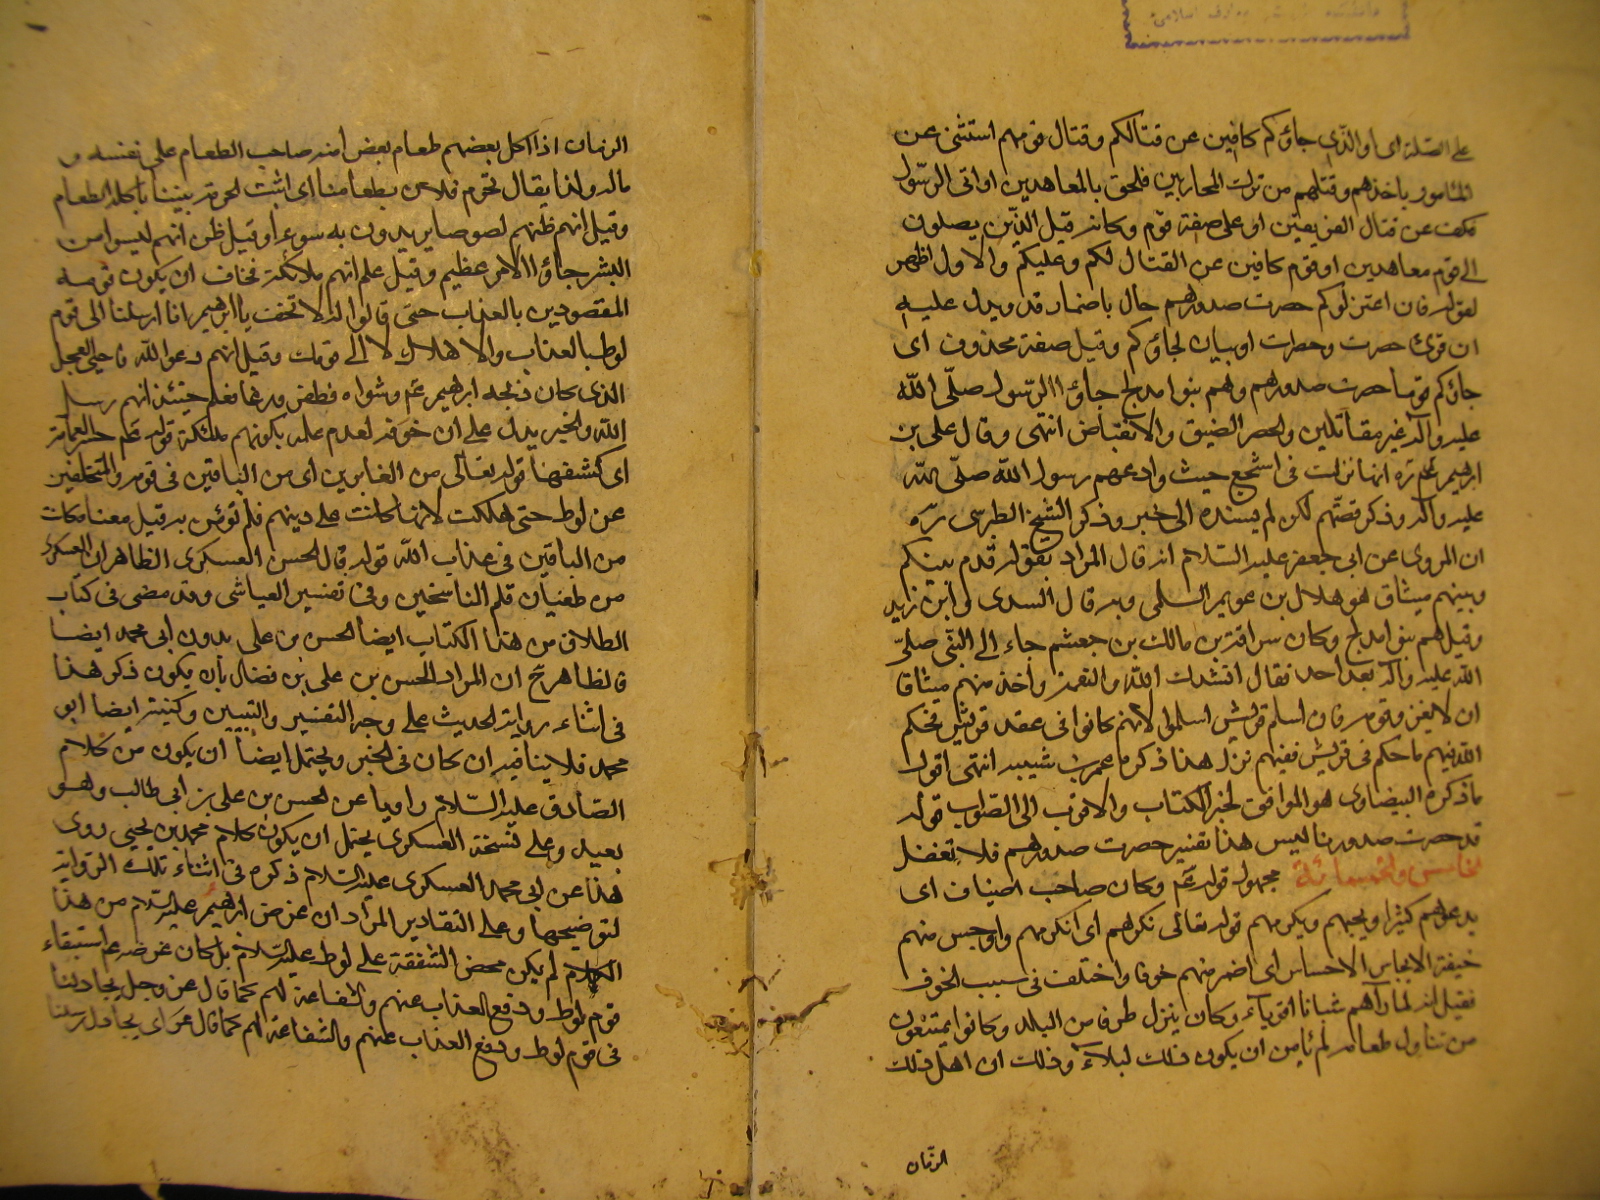 على الصلة اى او الذى جاؤكم كافين عن قتالكم و قتال قومهم استثنى عن
المأمور باخذهم وقتلهم من ترك المحاربين فلحق بالمعاهدين او اتى الرسول
وكف عن قتال الفريقين او على صفة قوم وكانه قيل الذين يصلون
الى قوم معاهدين او قوم كافين عن القتال لكم وعليكم والاول اظهر
لقوله فان اعتزلوكم حصرت صدورهم حال باضمار قد ويدل عليه
ان قرئ حصرت وحصرات او بيان لجاؤكم وقيل صفة محذوف اى
جاؤكم قوما حصرت صدورهم وهم بنوا مدلج جاؤا الرسول صلى الله
عليه وآله غير مقاتلين والحصر الضيق والانقباض انتهى وقال على بن
ابرهيم انها نزلت فى اشجع حيث وادعهم رسول الله صلى الله
عليه وآله وذكر قصتهم لكن لم يسنده الى خبر وذكر الشيخ الطبرسى ره
ان المروى عن ابى جعفر عليه السلام انه قال المراد بقوله قوم بينكم
وبينهم ميثاق هو هلال بن عويمر السلمى وبه قال السدى وابن زيد
وقيل هم بنوا مدلج وكان سراقة بن مالك بن جعشم جاء الى النبى صلى
الله عليه وآله بعد احد فقال انشدك الله والنعمة واخذ منهم ميثاقا
ان لا يغزو قومه فان اسلم قريش اسلموا لانهم كانوا فى عقد قريش فحكم
الله فيهم ما حكم فى قريش ففيهم نزل هذا ذكره عمر بن شيبه انتهى اقول
ما ذكره البيضاوى هو الموافق لخبر الكتاب والاقرب الى الصواب قوله
قد حصرت صدورنا ليس هذا تفسير حصرت صدورهم فلا تغفل
الخامس والخمسمائة مجهول قوله عم وكان صاحب اضياف اى
يدعوهم كثيرا ويحبهم ويكرمهم قوله تعالى نكرهم اى انكرهم واوجس منهم
خيفة الايجاس الاحساس اى اضمر منهم خوفا واختلف فى سبب الخوف
فقيل انه لما رآهم شبانا اقوياء وكان ينزل طرفا من البلد وكانوا يمتنعون
من تناول طعامه لم يأمن ان يكون ذلك لبلاء وذلك ان اهل ذلك
الزمان
الزمان اذا اكل بعضهم طعام بعض امنه صاحب الطعام على نفسه و
ماله ولذا يقال تحرم فلان بطعامنا اى اثبت الحرمة بيننا باكله الطعام
وقيل انهم ظنهم لصوصا يريدون به سوءا وقيل ظن انهم ليسوا من
البشر جاؤا الامر عظيم وقيل علم انهم ملائكة فخاف ان يكون قومه
المقصودين بالعذاب حتى قالوا له لا تخف يا ابرهيم انا ارسلنا الى قوم
لوط بالعذاب والاهلاك لا الى قومك وقيل انهم دعوا الله فاحيى العجل
الذى كان ذبحه ابرهيم عم وشواه فطفر ورغا فعلم حينئذ انهم رسل
الله والخبر يدل على ان خوفه لعدم علمه بكونهم ملائكة قوله عم حسر العمامة
اى كشفها قوله تعالى من الغابرين اى من الباقين فى قومه والمتخلفين
عن لوط حتى هلكت لانها كانت على دينهم فلم تؤمن به وقيل معناه كانت
من الباقين فى عذاب الله قوله قال الحسن العسكرى الظاهر ان العسكرى
من طغيان قلم الناسخين وفى تفسير العياشى وقد مضى فى كتاب
الطلاق من هذا الكتاب ايضا الحسن بن على بدون ابى محمد ايضا
فالظاهر ح ان المراد الحسن بن على بن فضال بان يكون ذكر هذا
فى اثناء رواية الحديث على وجه التفسير والتبيين وكنيته ايضا ابو
محمد فلا ينافيه ان كان فى الخبر ويحتمل ايضا ان يكون من كلام
الصادق عليه السلام راويا عن الحسن بن على بن ابى طالب وهو
بعيد وعلى نسخة العسكرى يحتمل ان يكون كلام محمد بن يحيى روى
هذا عن ابى محمد العسكرى عليه السلام ذكره فى اثناء تلك الرواية
لتوضيحها وعلى التقادير المراد ان غرض ابرهيم عليه السلام من هذا
الكلام لم يكن محض الشفقة على لوط عليه السلام بل كان غرضه عم استبقاء
قوم لوط ودفع العذاب عنهم والشفاعة لهم كما قال عز وجل يجادلنا
فى قوم لوط ودفع العذاب عنهم والشفاعة لهم كما قال